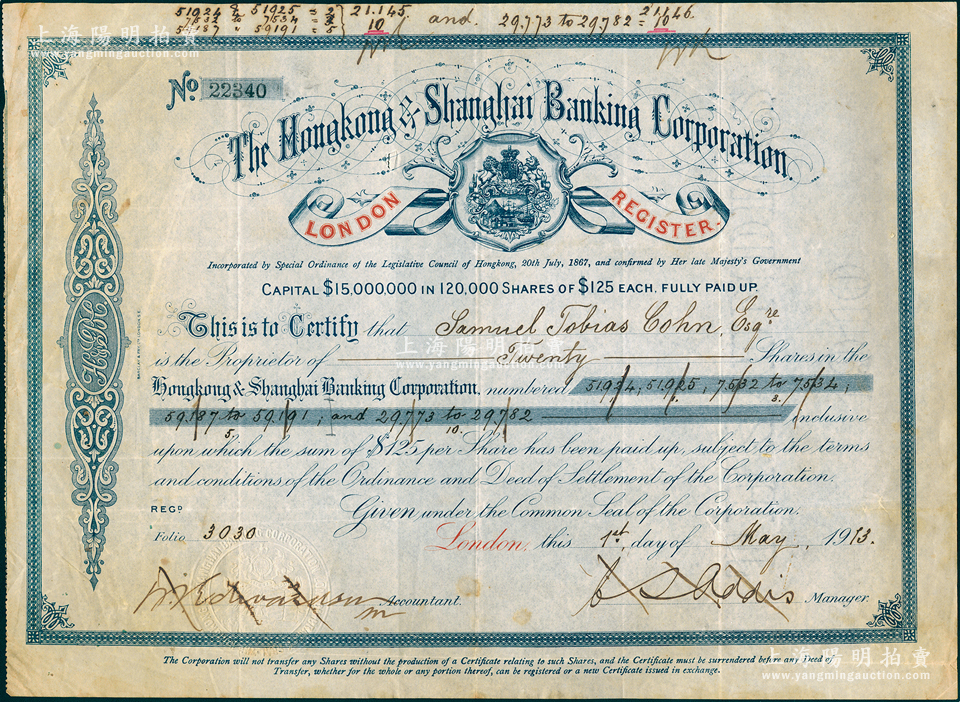 51924 & 51925 = 2
7532 to 7534 = 3
59187 " 59191 = 5
21.145
10
and.
29.773 to 29.782 =
21.146
10
上海陽明拍賣
www.yangmingauction.com
上海陽明拍賣
www.yangmingauction.com
No. 22340
The Hongkong & Shanghai Banking Corporation.
LONDON REGISTER.
Incorporated by Special Ordinance of the Legislative Council of Hongkong, 20th July, 1867, and confirmed by Her late Majesty's Government
CAPITAL $15,000,000 IN 120,000 SHARES OF $125 EACH, FULLY PAID UP.
This is to Certify that Samuel Tobias Cohn, Esqre
is the Proprietor of Twenty Shares in the
上海陽明拍賣
www.yangmingauction.com
Hongkong & Shanghai Banking Corporation, numbered 51924, 51925, 7532 to 7534,
3.
59187 to 59191, and 29.773 to 29.782 inclusive
5. 10.
upon which the sum of $125 per Share has been paid up, subject to the terms
and conditions of the Ordinance and Deed of Settlement of the Corporation.
H&SBC
REGD
Given under the Common Seal of the Corporation.
Folio 3030
London, this 1st day of May, 1913.
Accountant.
C S Addis Manager.
The Corporation will not transfer any Shares without the production of a Certificate relating to such Shares, and the Certificate must be surrendered before any Deed of
Transfer, whether for the whole or any portion thereof, can be registered or a new Certificate issued in exchange.
上海陽明拍賣
www.yangmingauction.com
上海陽明拍賣
www.yangmingauction.com